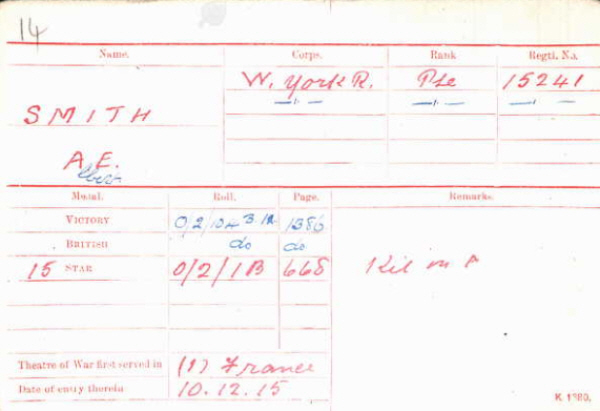 14
Name. Corps. Rank Regtl. No.
W. York R. Pte 15241
—"— —"— —"—
SMITH
A. E.
Medal. Roll. Page. Remarks.
VICTORY 1386
BRITISH do do
15 STAR 0/2/1B 668 Kil in A
Theatre of War first served in (1) France
Date of entry therein 10.12.15
K 1380.